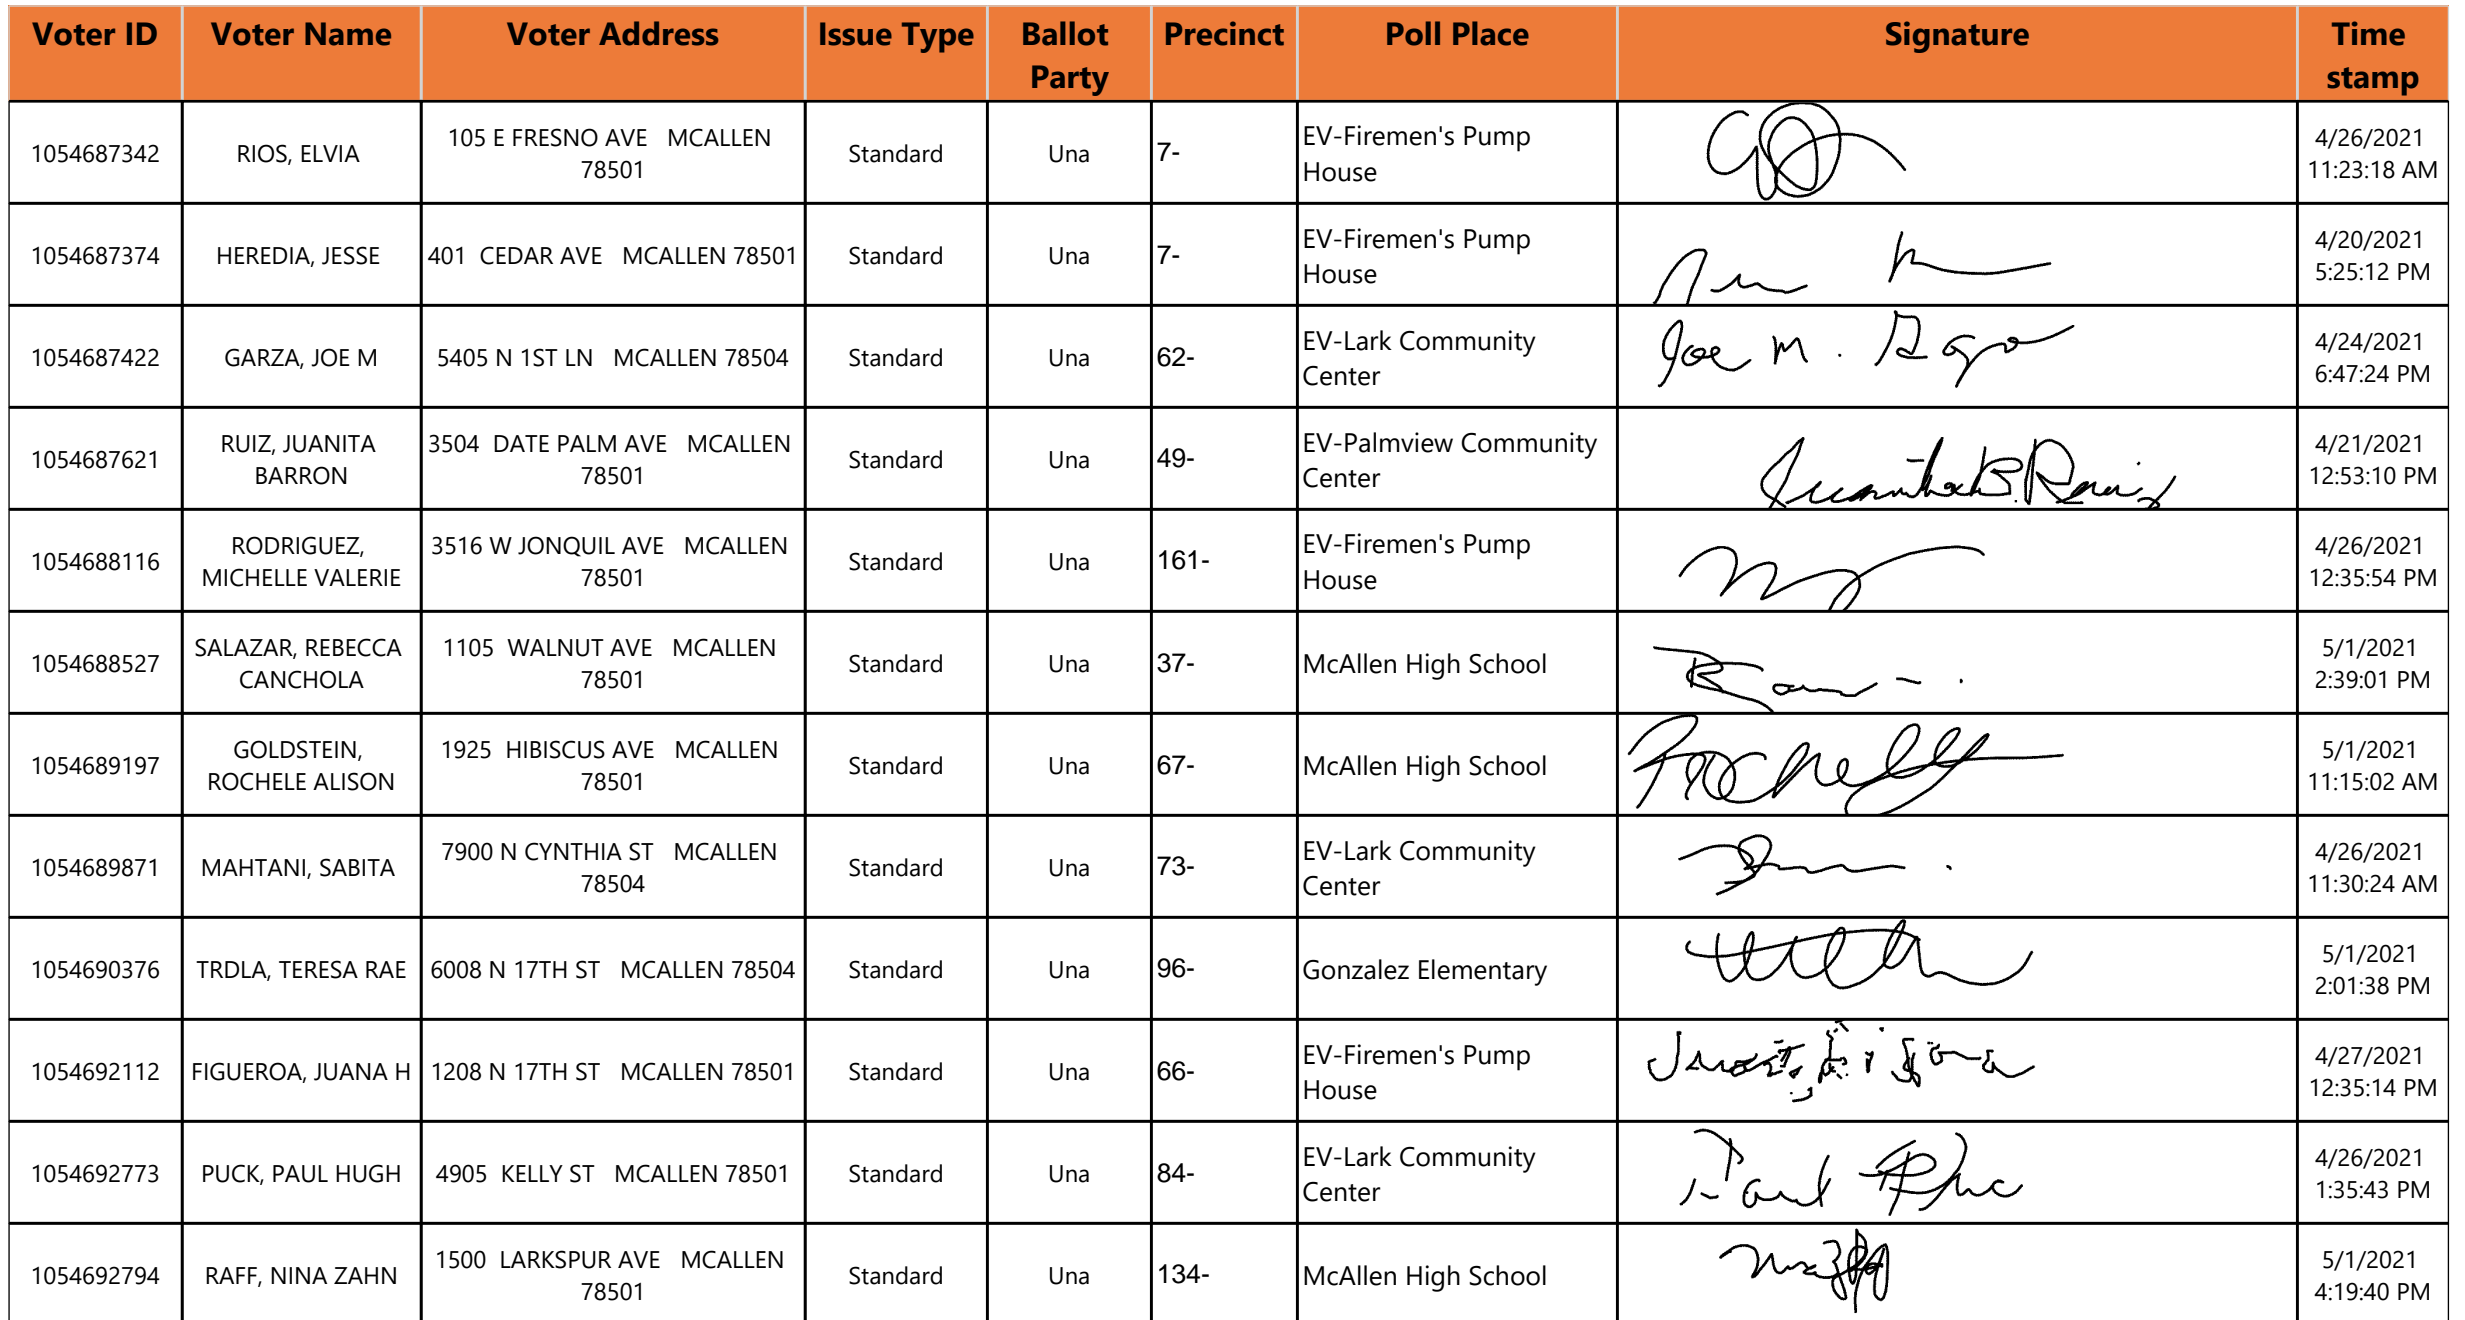 Voter ID Voter Name Voter Address Issue Type Ballot Party Precinct Poll Place Signature Time stamp
1054687342 RIOS, ELVIA 105 E FRESNO AVE MCALLEN 78501 Standard Una 7- EV-Firemen's Pump House 4/26/2021 11:23:18 AM
1054687374 HEREDIA, JESSE 401 CEDAR AVE MCALLEN 78501 Standard Una 7- EV-Firemen's Pump House 4/20/2021 5:25:12 PM
1054687422 GARZA, JOE M 5405 N 1ST LN MCALLEN 78504 Standard Una 62- EV-Lark Community Center Joe M. 4/24/2021 6:47:24 PM
1054687621 RUIZ, JUANITA BARRON 3504 DATE PALM AVE MCALLEN 78501 Standard Una 49- EV-Palmview Community Center Juanita B. Ruiz 4/21/2021 12:53:10 PM
1054688116 RODRIGUEZ, MICHELLE VALERIE 3516 W JONQUIL AVE MCALLEN 78501 Standard Una 161- EV-Firemen's Pump House 4/26/2021 12:35:54 PM
1054688527 SALAZAR, REBECCA CANCHOLA 1105 WALNUT AVE MCALLEN 78501 Standard Una 37- McAllen High School 5/1/2021 2:39:01 PM
1054689197 GOLDSTEIN, ROCHELE ALISON 1925 HIBISCUS AVE MCALLEN 78501 Standard Una 67- McAllen High School 5/1/2021 11:15:02 AM
1054689871 MAHTANI, SABITA 7900 N CYNTHIA ST MCALLEN 78504 Standard Una 73- EV-Lark Community Center 4/26/2021 11:30:24 AM
1054690376 TRDLA, TERESA RAE 6008 N 17TH ST MCALLEN 78504 Standard Una 96- Gonzalez Elementary 5/1/2021 2:01:38 PM
1054692112 FIGUEROA, JUANA H 1208 N 17TH ST MCALLEN 78501 Standard Una 66- EV-Firemen's Pump House 4/27/2021 12:35:14 PM
1054692773 PUCK, PAUL HUGH 4905 KELLY ST MCALLEN 78501 Standard Una 84- EV-Lark Community Center Paul 4/26/2021 1:35:43 PM
1054692794 RAFF, NINA ZAHN 1500 LARKSPUR AVE MCALLEN 78501 Standard Una 134- McAllen High School 5/1/2021 4:19:40 PM